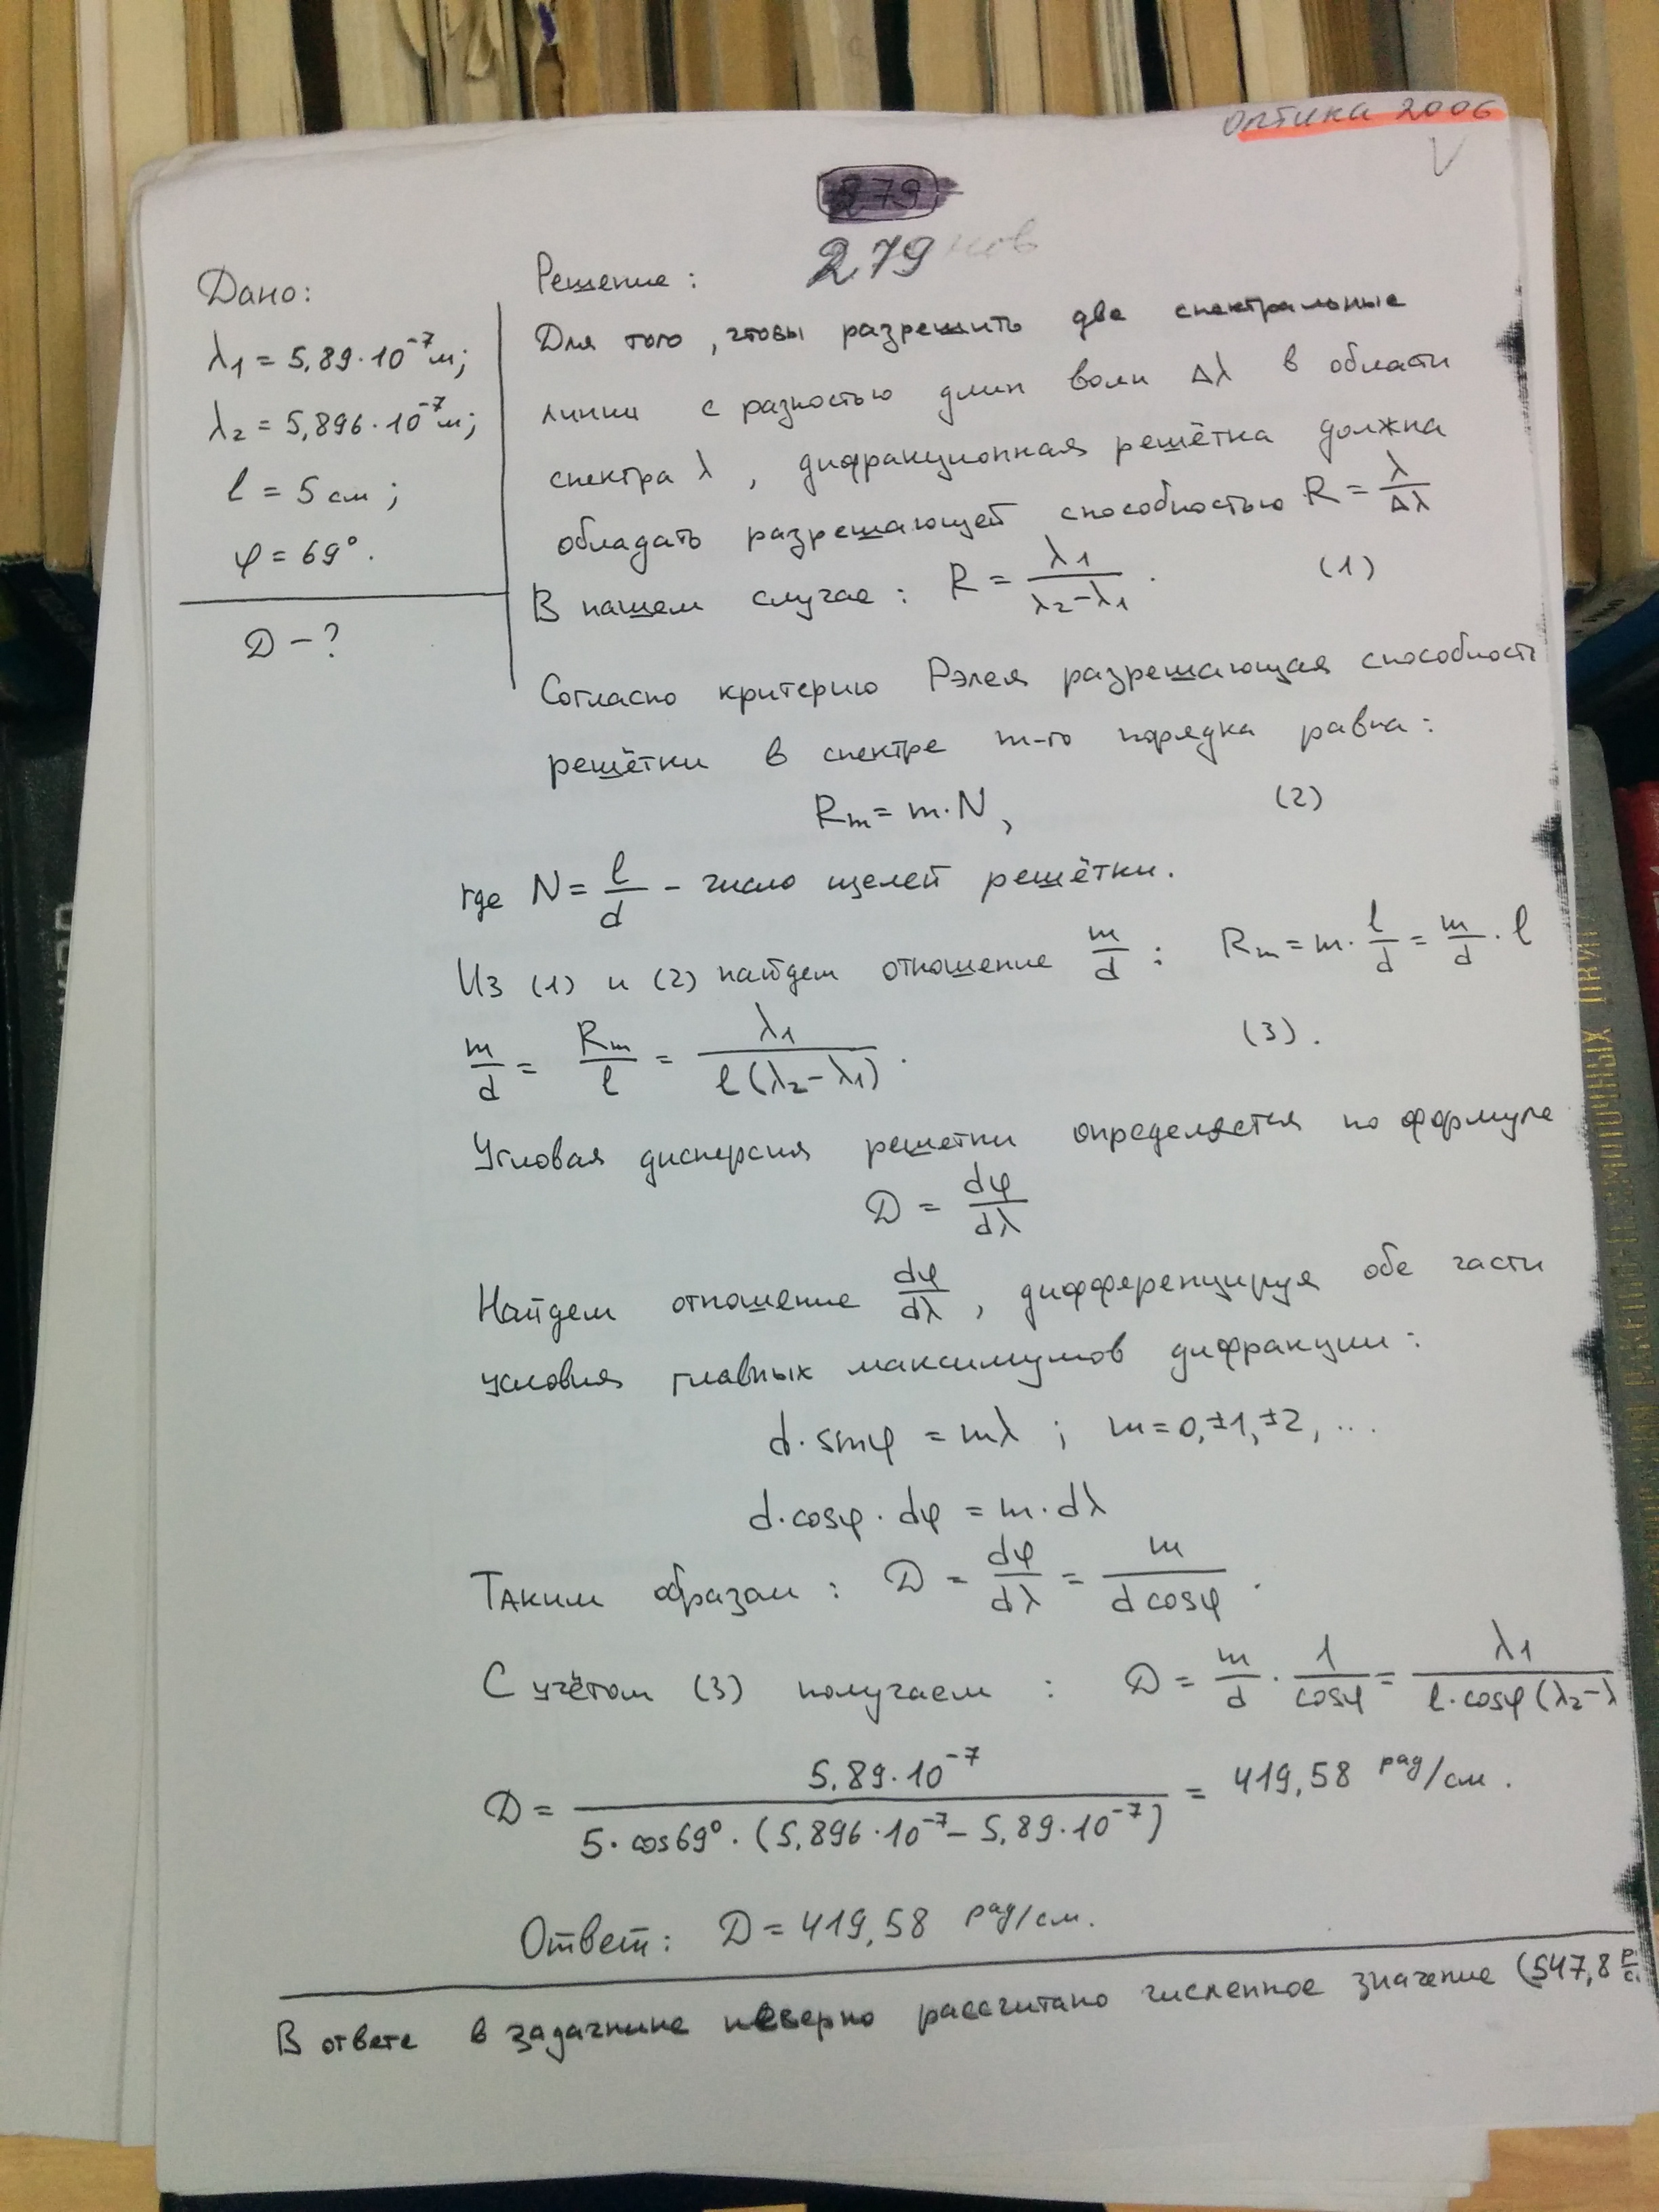 оптика 2006
V
2.79
2.79 нов
Дано:
λ₁ = 5,89·10⁻⁷м;
λ₂ = 5,896·10⁻⁷м;
l = 5 см;
φ = 69°.
D – ?
Решение:
Для того, чтобы разрешить две спектральные
линии с разностью длин волн Δλ в области
спектра λ, дифракционная решётка должна
обладать разрешающей способностью R = λ/Δλ
В нашем случае: R = λ₁/(λ₂–λ₁). (1)
Согласно критерию Рэлея разрешающая способность
решётки в спектре m-го порядка равна:
Rₘ = m·N, (2)
где N = l/d – число щелей решётки.
Из (1) и (2) найдем отношение m/d : Rₘ = m·l/d = m/d·l
m/d = Rₘ/l = λ₁/(l(λ₂–λ₁)). (3).
Угловая дисперсия решетки определяется по формуле
D = dφ/dλ
Найдем отношение dφ/dλ, дифференцируя обе части
условия главных максимумов дифракции:
d·sinφ = mλ ; m=0,±1,±2,...
d·cosφ·dφ = m·dλ
Таким образом : D = dφ/dλ = m/(d cosφ).
С учётом (3) получаем : D = m/d · 1/cosφ = λ₁/(l·cosφ(λ₂–λ
D = 5,89·10⁻⁷/(5·cos69°·(5,896·10⁻⁷ – 5,89·10⁻⁷)) = 419,58 рад/см.
Ответ: D = 419,58 рад/см.
В ответе в задачнике неверно рассчитано численное значение (547,8